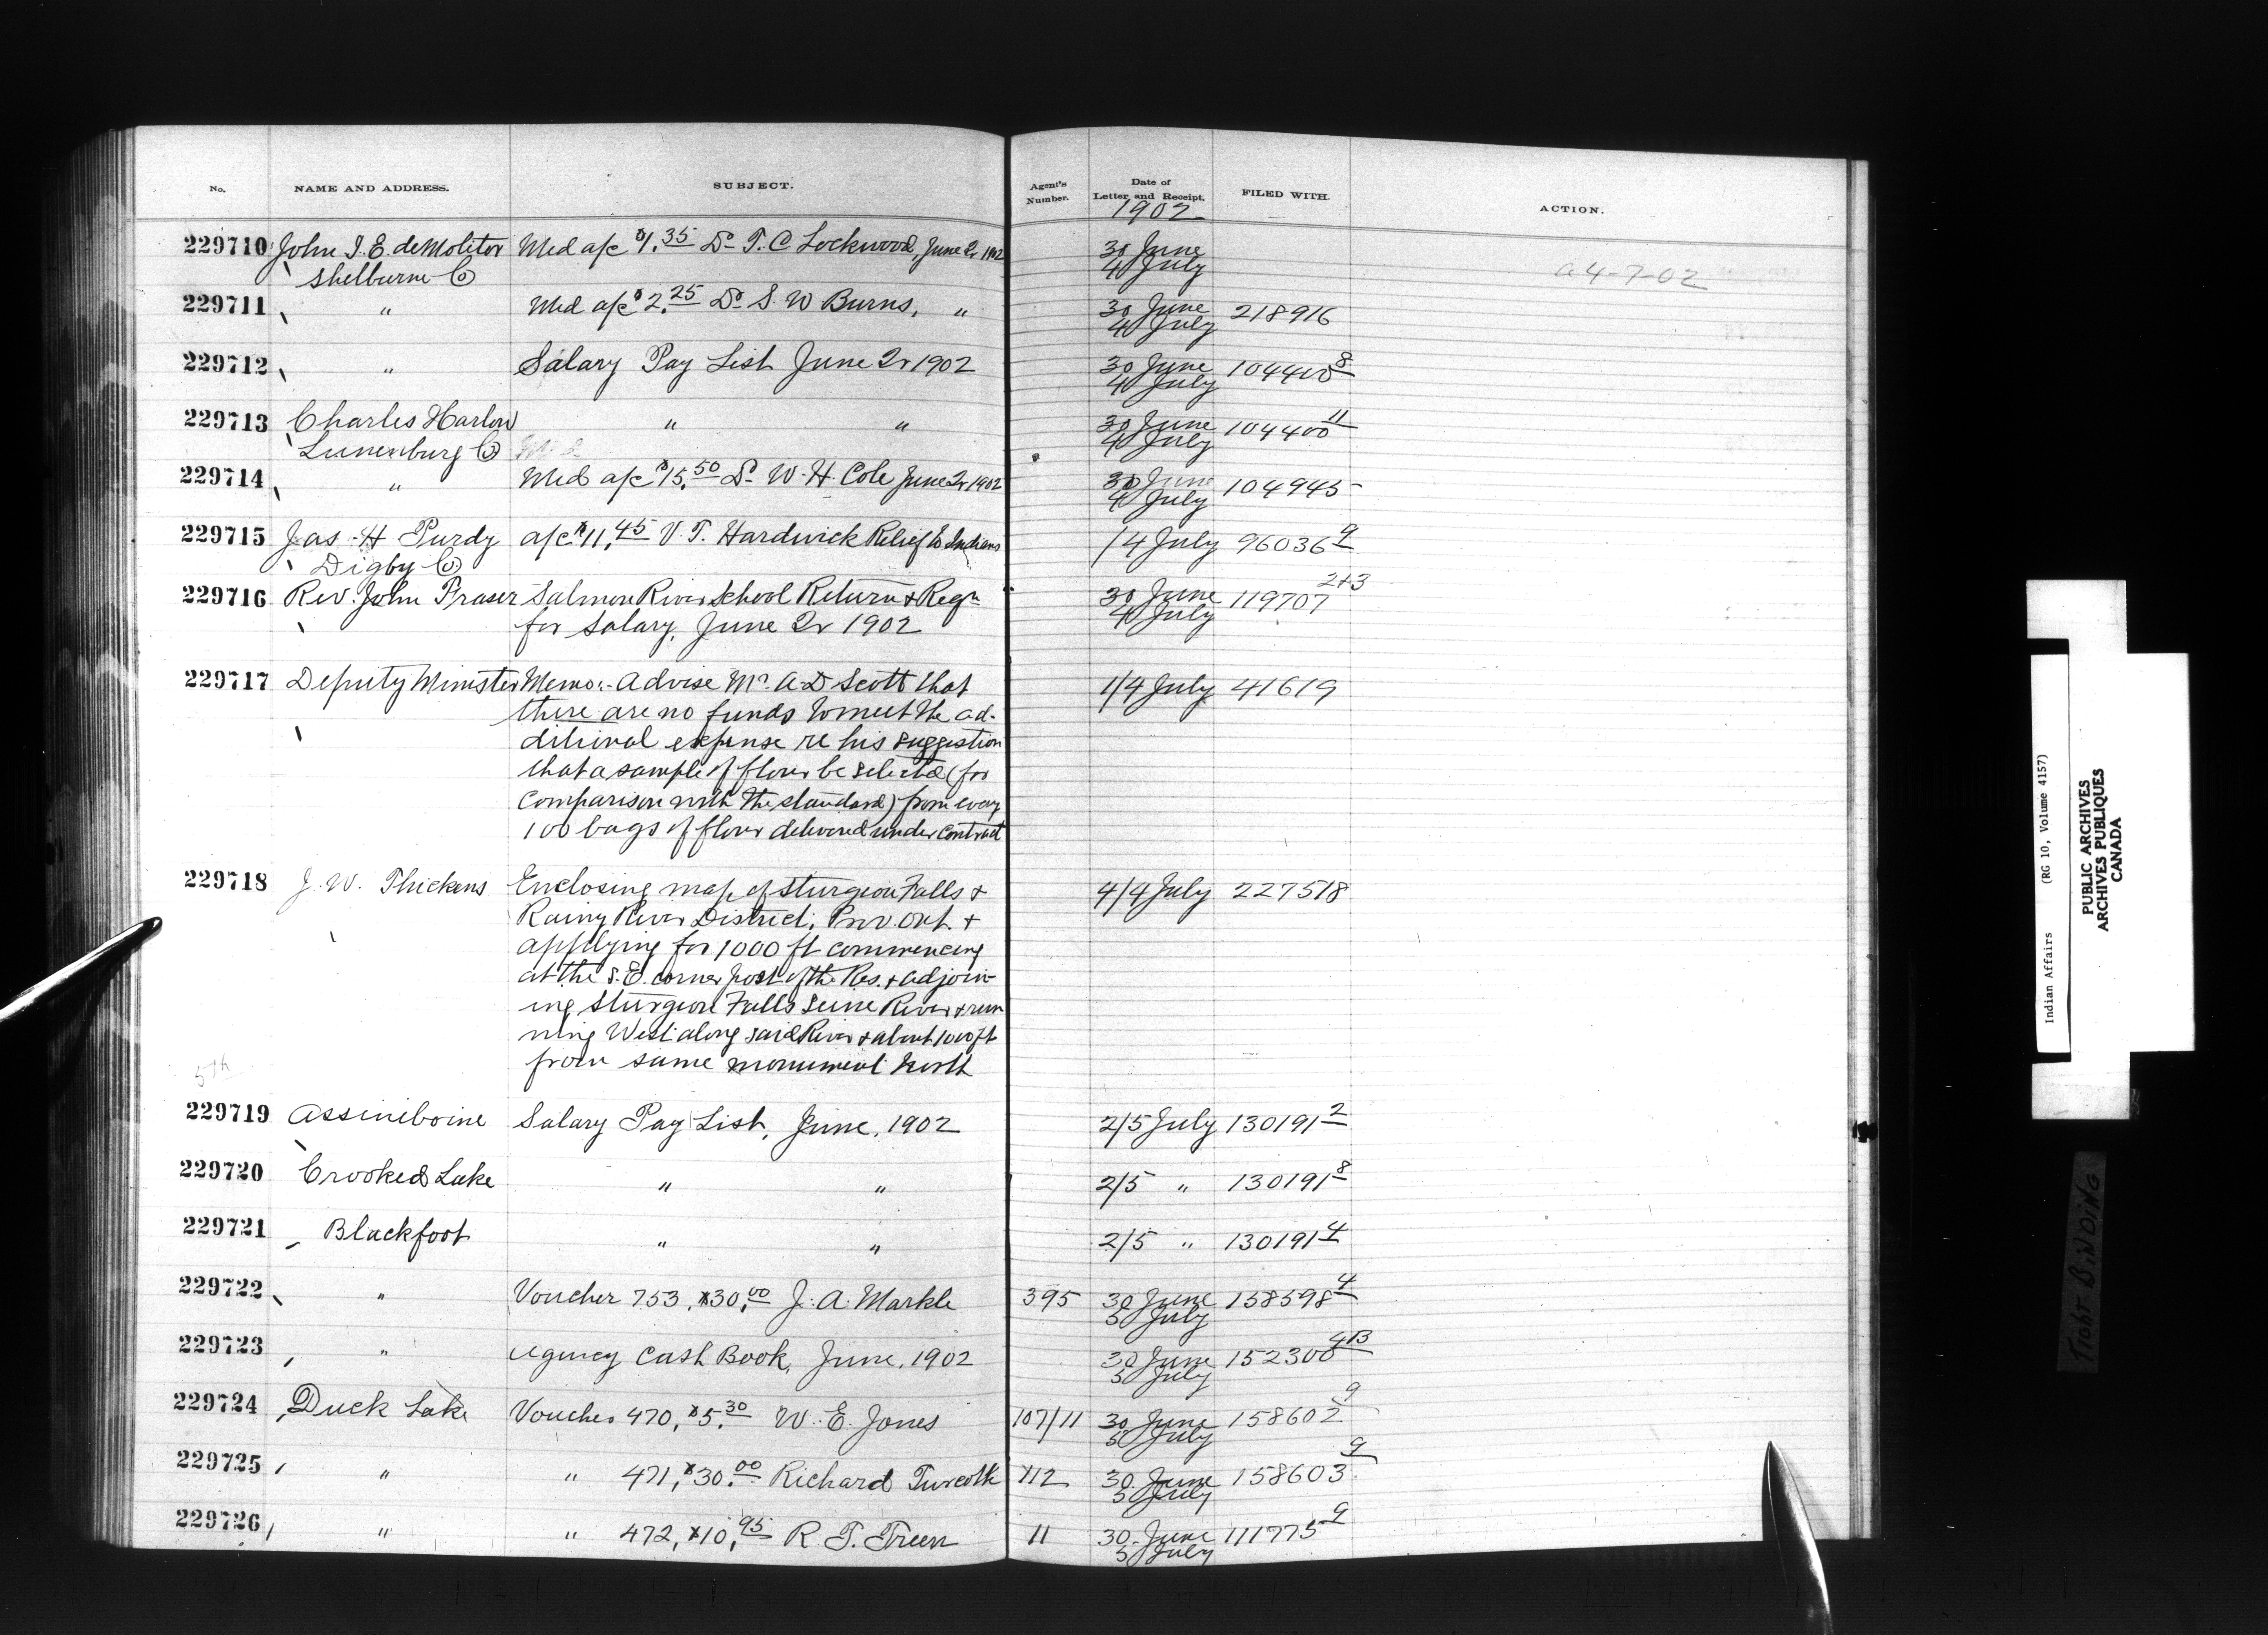 No. NAME AND ADDRESS. SUBJECT. Agent's Number. Date of Letter and Receipt. FILED WITH. ACTION.
1902
229710 John J. E. deMolitor Med a/c $1.35 Dr T. C. Lockwood, June Qr 1902 30 June
Shelburne Co 4 July a 4-7-02
229711 " Med a/c $2.25 Dr S. W Burns, " 30 June 218916
4 July
229712 " Salary Pay List June Qr 1902 30 June 104400 8
4 July
229713 Charles Harlow " " 30 June 104400 11
Lunenburg Co 4 July
229714 " Med a/c $15.50 Dr W. H. Cole June Qr 1902 30 June 104945
4 July
229715 Jas. H Purdy a/c $11.45 V. T. Hardwick Relief to Indians 1/4 July 96036 9
Digby Co
229716 Rev. John Fraser Salmon River School Return & Reqn 30 June 119707 2+3
for Salary, June Qr 1902 4 July
229717 Deputy Minister Memo:- Advise Mr A D Scott that 1/4 July 41619
there are no funds to meet the ad-
ditional expense re his suggestion
that a sample of flour be selected (for
comparison with the standard) from every
100 bags of flour delivered under contract
229718 J. W. Thickens Enclosing map of Sturgeon Falls & 4/4 July 227518
Rainy River District, Prov. Ont. &
applying for 1000 ft commencing
at the S.E. corner post of the Res. & adjoin-
ing Sturgeon Falls Seine River & run
ning West along said River & about 1000 ft
from same monument North
5th
229719 Assiniboine Salary Pay List, June, 1902 2/5 July 130191 2
229720 Crooked Lake " " 2/5 " 130191 8
229721 Blackfoot " " 2/5 " 130191 4
229722 " Voucher 753, $30.00 J. A. Markle 395 30 June 158598 4
5 July
229723 " Agency Cash Book, June, 1902 30 June 152300 4B
5 July
229724 Duck Lake Voucher 470, $5.30 W. E. Jones 107/11 30 June 158602 9
5 July
229725 " " 471, $30.00 Richard Turcotte 112 30 June 158603 9
5 July
229726 " " 472, $10.95 R. T. Treen 11 30 June 111775 9
5 July
Indian Affairs (RG 10, Volume 4157)
PUBLIC ARCHIVES
ARCHIVES PUBLIQUES
CANADA
TIGHT BINDING